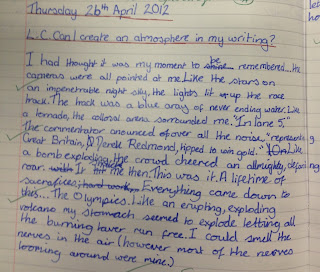 Thursday 26th April 2012
L.C. Can I create an atmosphere in my writing?
I had thought it was my moment to be remembered...the
cameras were all pointed at me. Like the stars on
an impenetrable night sky, the lights lit up the race
track. The track was a blue array of never ending water. Like
a tornado, the colossal arena surrounded me. "In lane 5"
The commentator announced over all the noise, "representing
Great Britain, Derek Redmond, tipped to win gold." Like
a bomb exploding, the crowd cheered an almighty, deafening
roar for me then. This was it. A lifetime of
sacrafices, hard work, Everything came down to
this... The Olympics. Like an erupting, exploding
volcano my stomach seemed to explode letting all
the burning laver run free. I could smell the
nerves in the air (however most of the nerves
looming around were mine.)